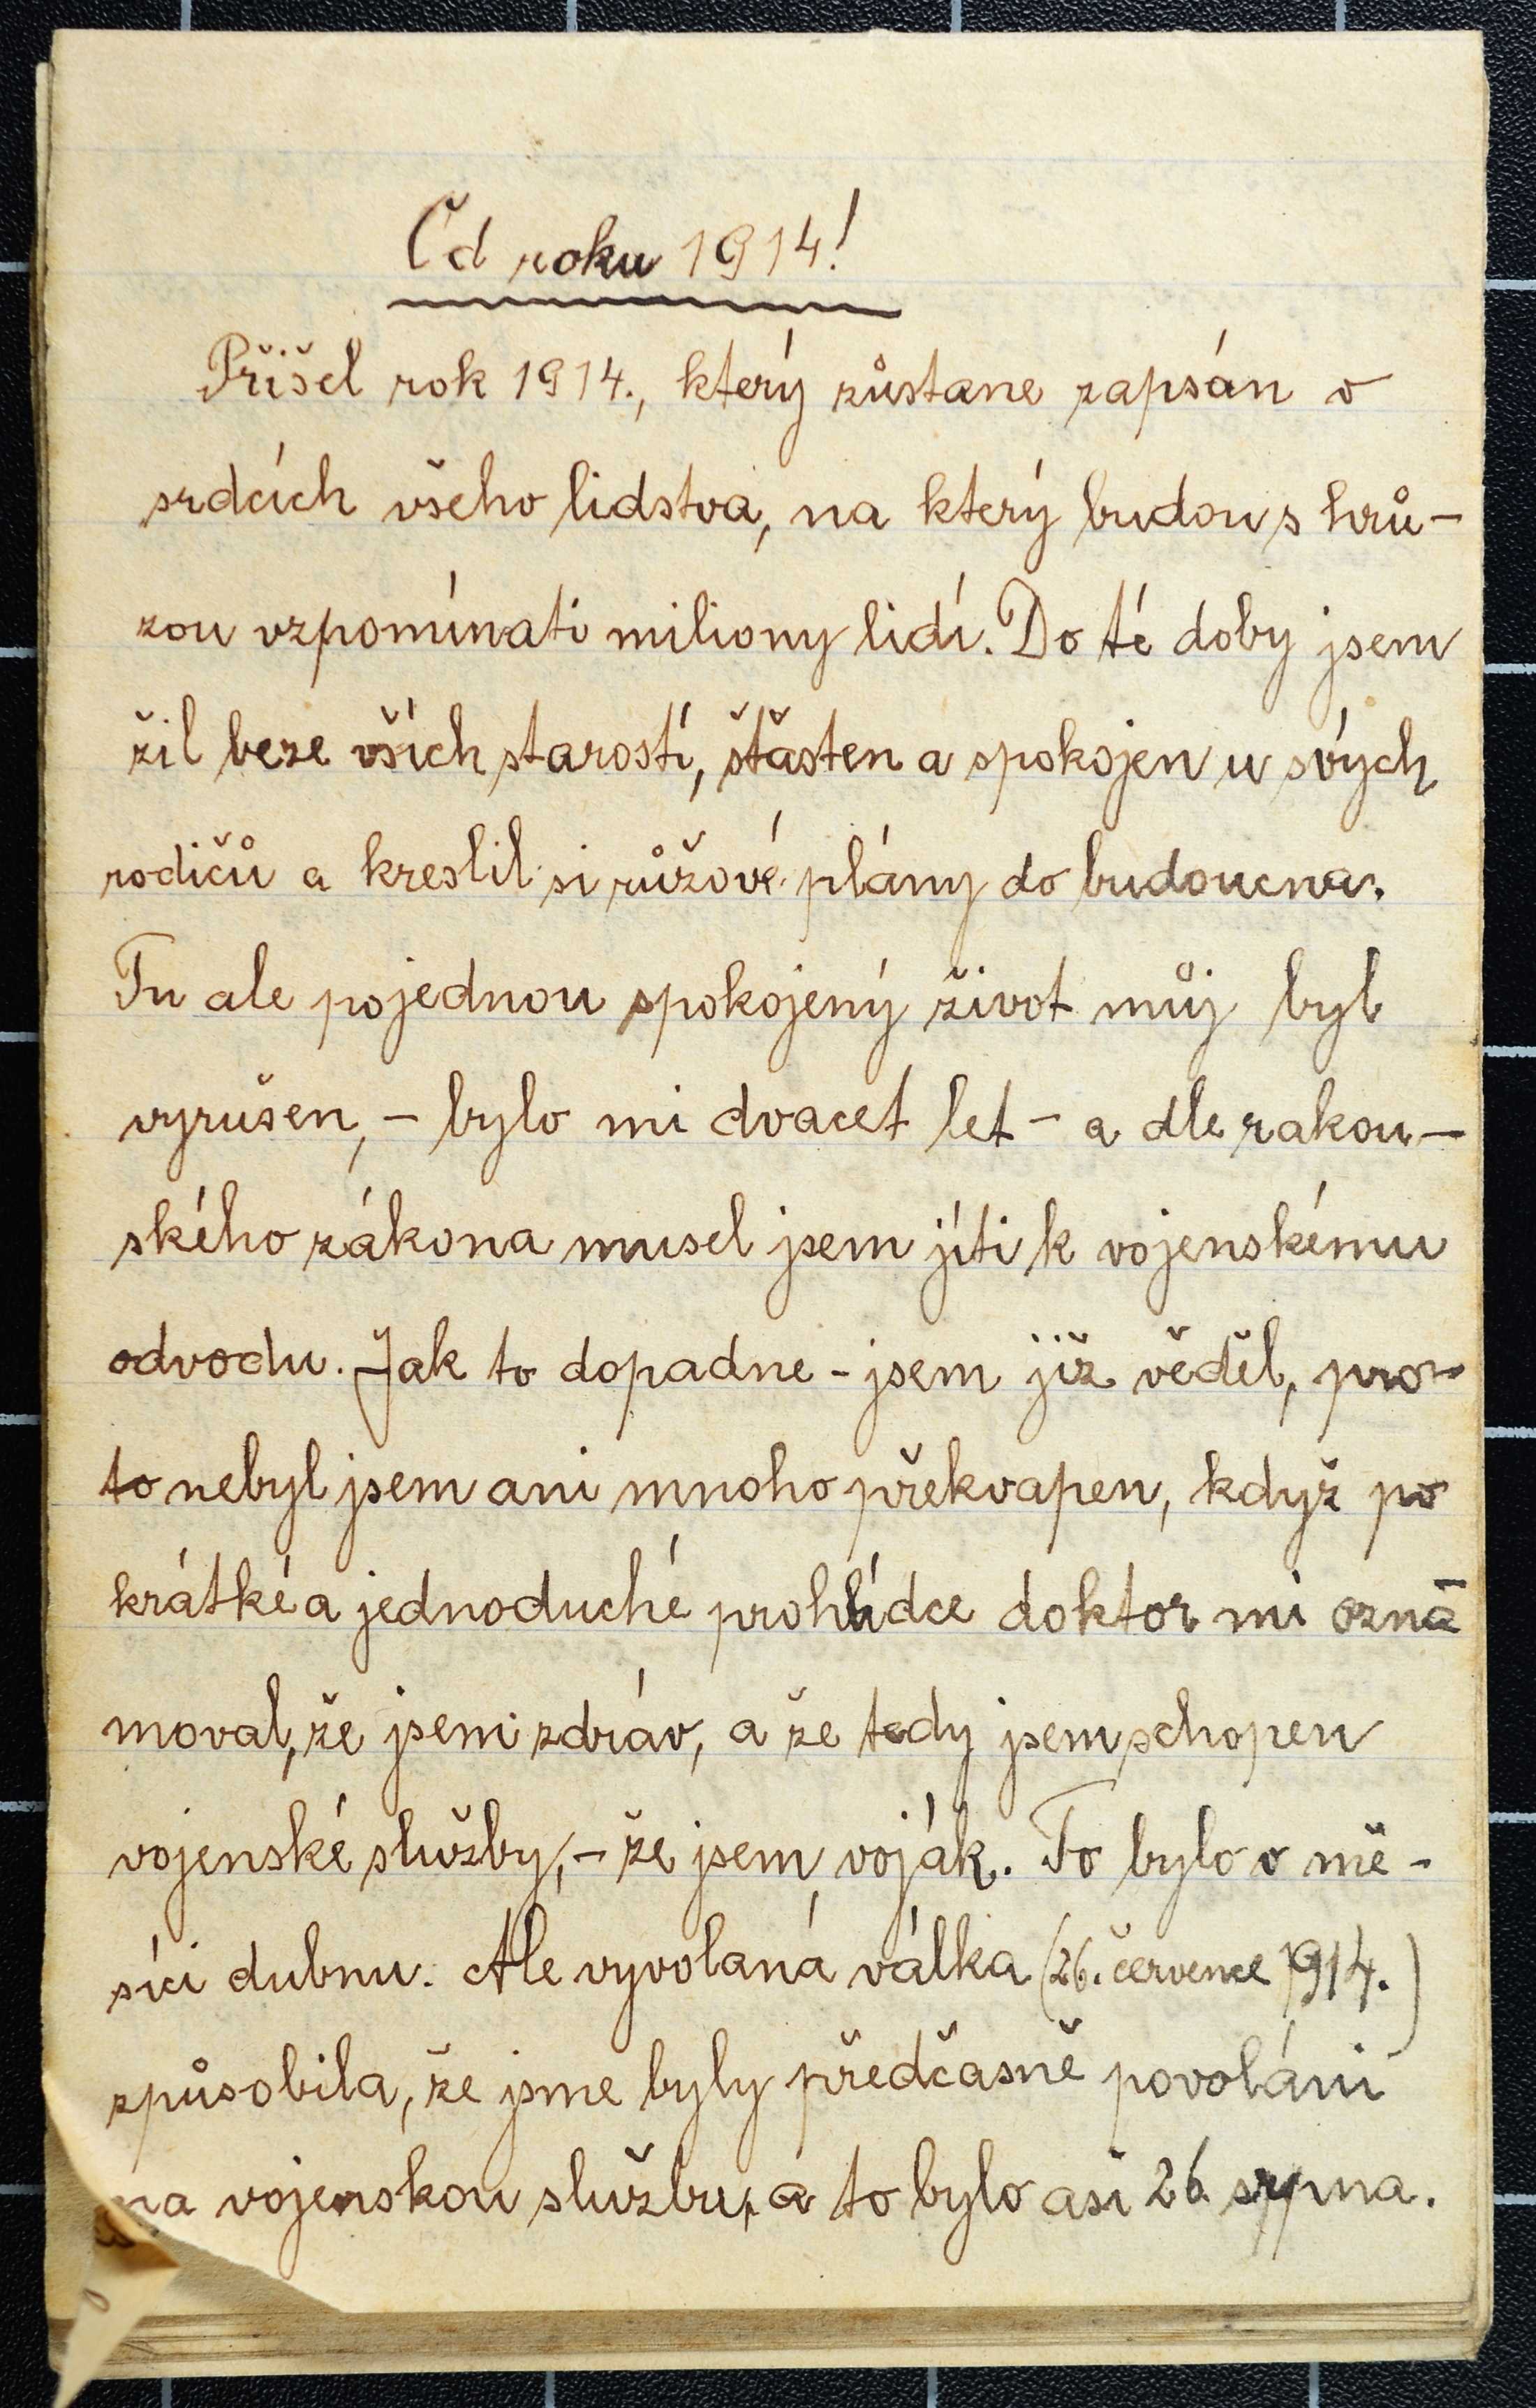 Od roku 1914!
Přišel rok 1914., který zůstane zapsán v
srdcích všeho lidstva, na který budou s hrů-
zou vzpomínati miliony lidí. Do té doby jsem
žil beze vších starostí, šťasten a spokojen u svých
rodičů a kreslil si růžové plány do budoucna.
Tu ale pojednou spokojený život můj byl
vyrušen, - bylo mi dvacet let - a dle rakou-
ského zákona musel jsem jíti k vojenskému
odvodu. Jak to dopadne - jsem již věděl, pro-
to nebyl jsem ani mnoho překvapen, když po
krátké a jednoduché prohlídce doktor mi ozná-
moval, že jsem zdráv, a že tedy jsem schopen
vojenské služby, - že jsem voják. To bylo v mě-
síci dubnu. Ale vyvolaná válka (26. července 1914.)
způsobila, že jsme byly předčasně povoláni
na vojenskou službu, a to bylo asi 26. srpna.